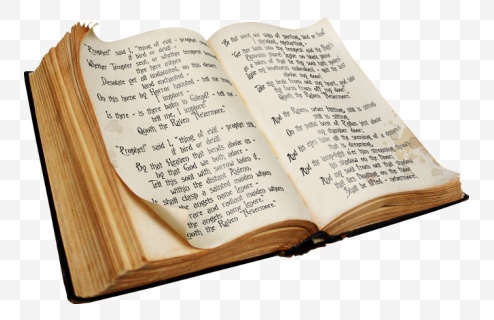 "Prophet!" said I, "thing of evil! - prophet still,
if bird or devil! -
Whether Tempter sent, or whether tempest
tossed thee here ashore,
Desolate yet all undaunted, on this desert
land enchanted -
On this home by Horror haunted - tell me
I implore -
Is there - is there balm in Gilead? - tell me -
tell me, I implore!"
Quoth the Raven "Nevermore."
"Prophet!" said I, "thing of evil! - prophet still,
if bird or devil! -
By that Heaven that bends above us -
by that God we both adore -
Tell this soul with sorrow laden if,
within the distant Aidenn,
It shall clasp a sainted maiden whom
the angels name Lenore -
rare and radiant maiden whom
the angels name Lenore."
Quoth the Raven "Nevermore."
"Be that word our sign of parting, bird or fiend!"
I shrieked, upstarting -
"Get thee back into the tempest and the Night's
Plutonian shore!
Leave no black plume as
a token of that lie thy soul hath spoken!
Leave my loneliness unbroken! - quit the
above my door!
Take thy beak from out my heart, and take
thy form from off my door!"
Quoth the Raven "Nevermore."
And the Raven, never flitting, still is sitting,
still is sitting
On the pallid bust of Pallas just above
my chamber door;
And his eyes have all the seeming of a demon's
that is dreaming,
And the lamp-light o'er him streaming throws
his shadow on the floor;
And my soul from out that shadow
that lies floating on the floor
Shall be lifted - nevermore!